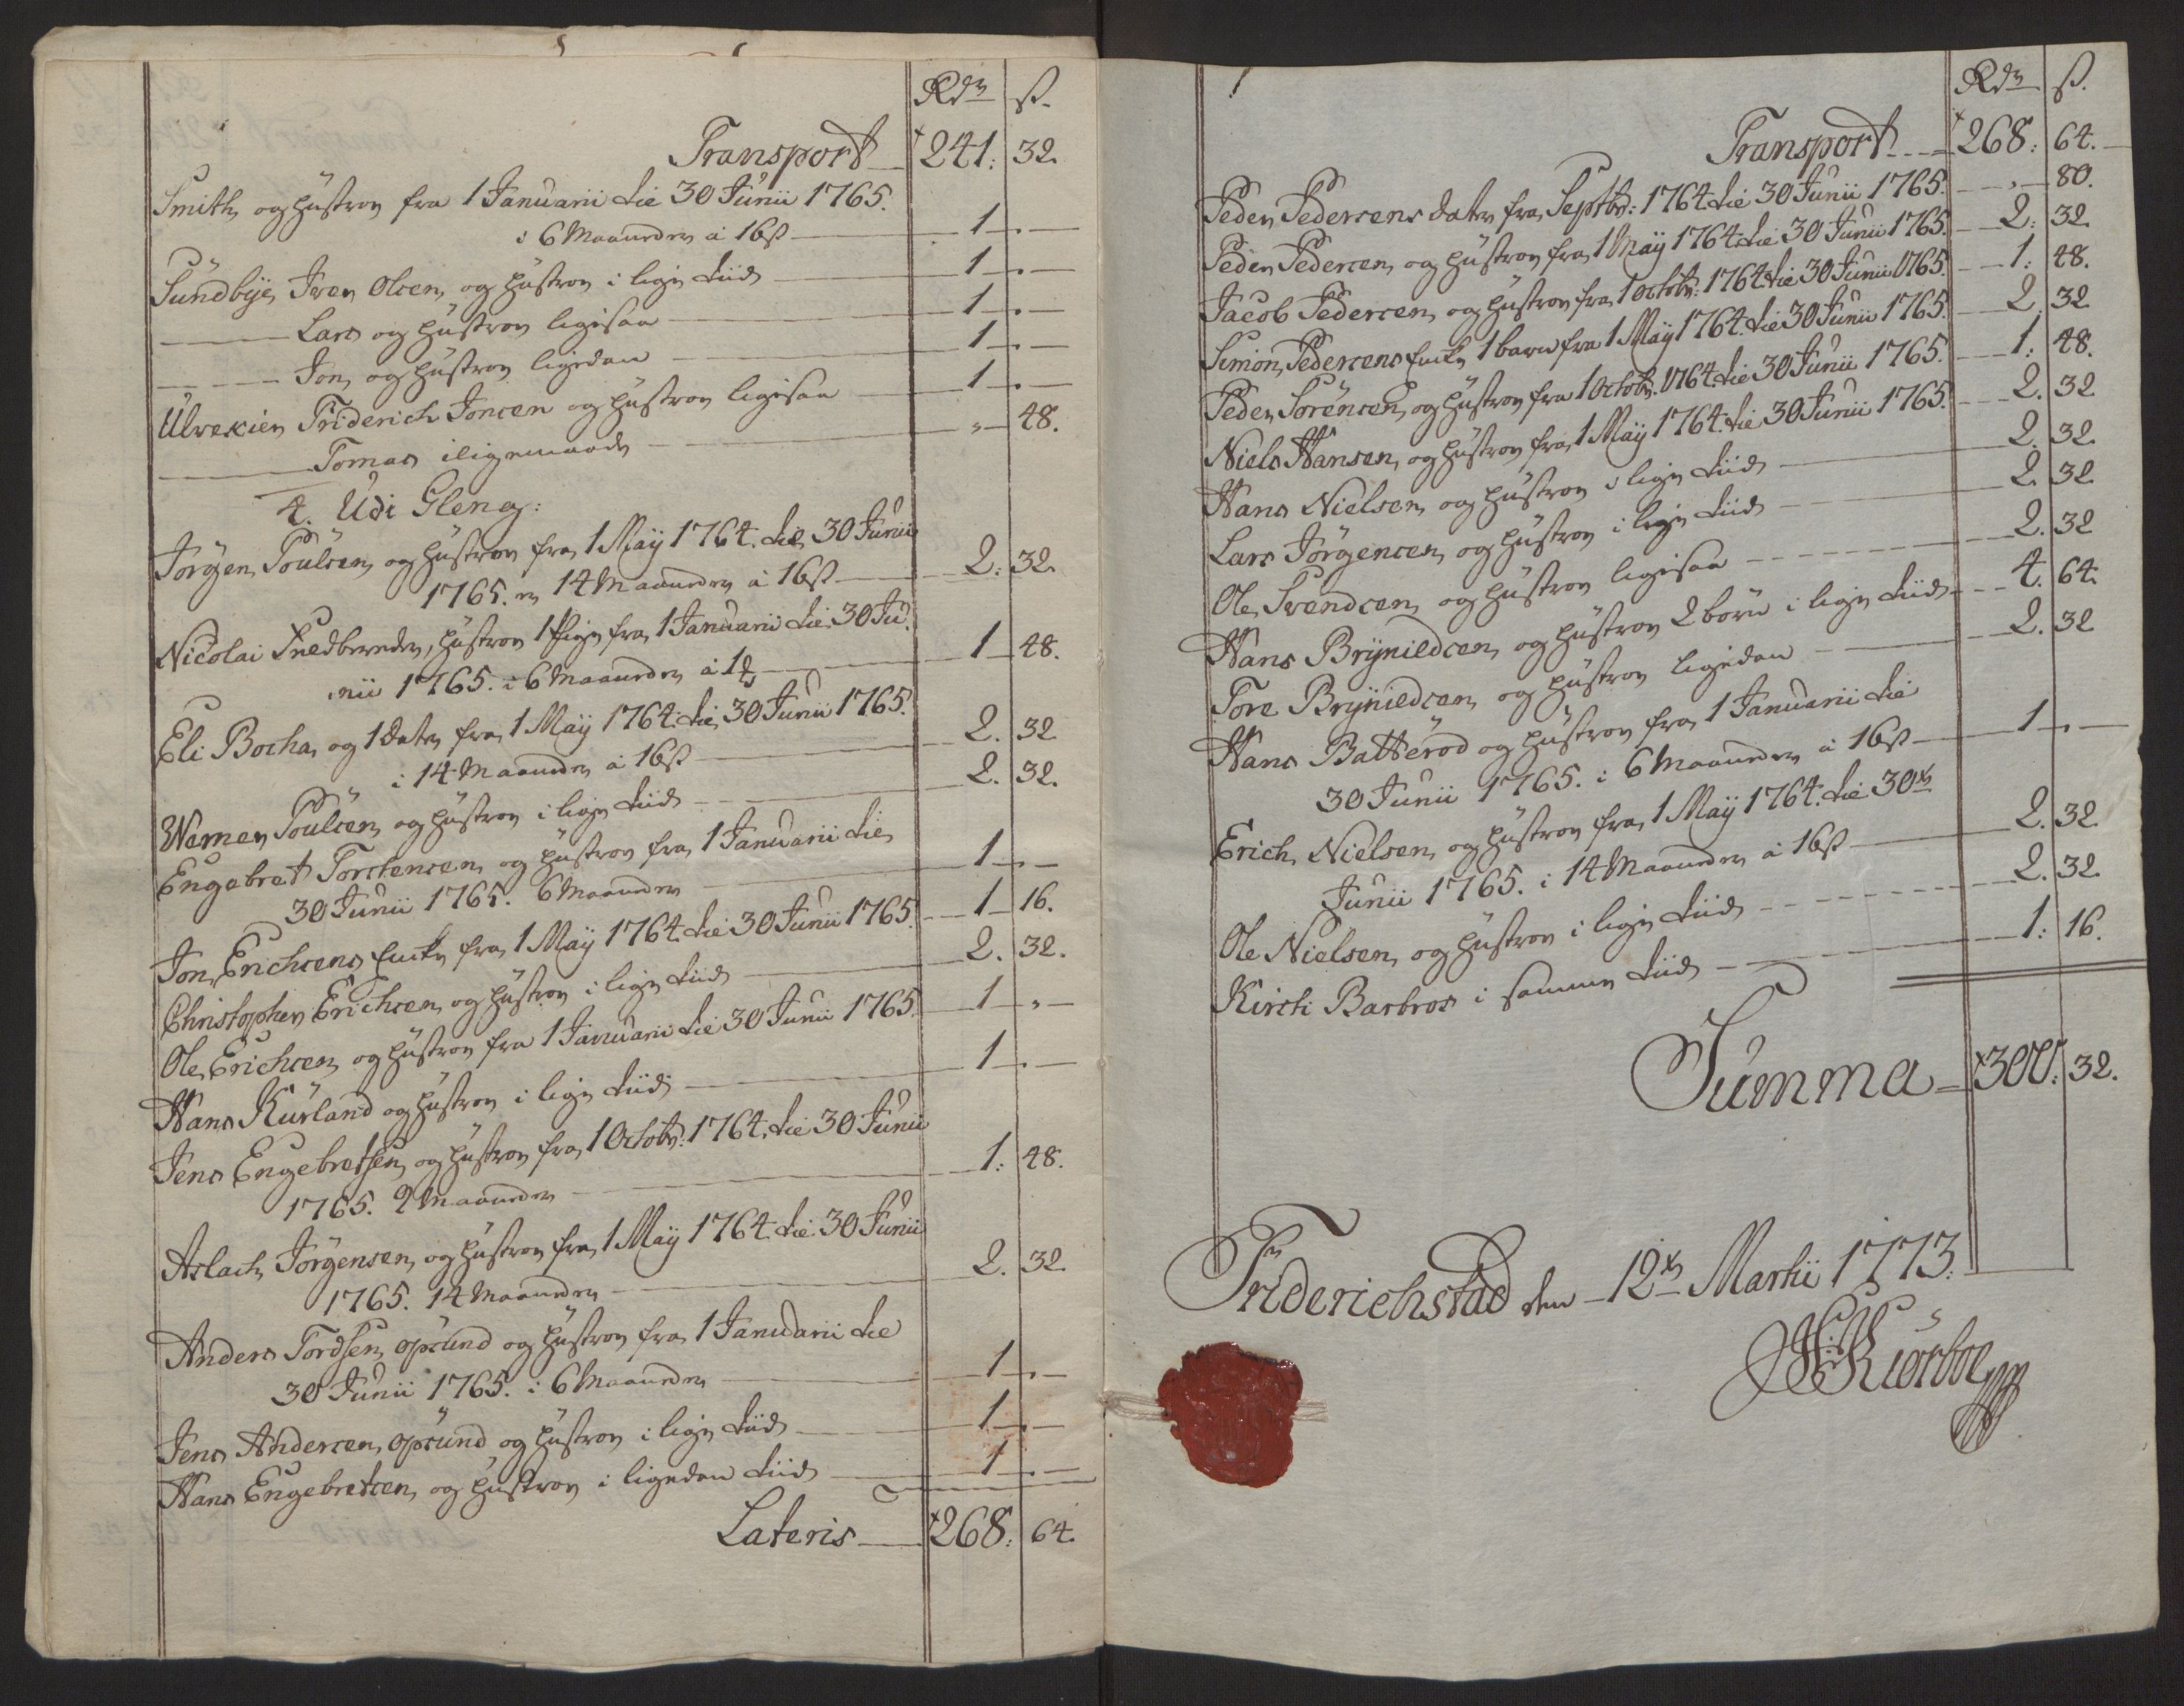 Rdr ß.
Transport 241: 32.
Smith, og hustroe fra 1 Januarii til 30 Junii 1765.
i 6 Maaneder à 16ß 1 - -
Sundbÿe, Iver Olsen, og hustroe i lige tiid 1 - -
Lars og hustroe ligesaa 1 - -
Jon, og hustroe ligedan 1 - -
Ulvekien Friderich Joncen og hustroe ligesaa 1 - -
Tomas iligemaade " 48.
4. Udi Gleng:
Jörgen Poulsen, og hustroe fra 1 Maÿ 1764. til 30 Junii
1765. er 14 Maaneder à 16ß 2: 32.
Nicolai hustroe 1 Pige fra 1 Januarii til 30 Ju-
nii 1765. i 6 Maaneder à 1 1 48.
Eli Bocha, og 1 dater fra 1 Maÿ 1764. til 30 Junii 1765.
i 14 Maaneder à 16ß 2. 32
Werner Poulsen, og hustroe i lige tiid 2. 32.
Engebret Torstensen, og hustroe fra 1 Januarii til
30 Junii 1765. 6 Maaneder 1 - -
Jon Erichsens Encke fra 1 Maÿ 1764. til 30 Junii 1765. 1 16.
Christopher Erichsen, og hustroe i lige tiid 2. 32.
Ole Erichsen, og hustroe fra 1 Januarii til 30 Junii 1765 1 " -
Hans Kurland og hustroe i lige tiid 1 - -
Jens Engebretsen, og hustroe fra 1 Octobr: 1764. til 30 Junii
1765. 9 Maaneder 1: 48.
Aslach Jörgensen, og hustroe fra 1 Maÿ 1764. til 30 Junii
1765. 14 Maaneder 2. 32.
Anders Tordsen, opsund og hustroe fra 1 Januarii til
30 Junii 1765. i 6 Maaneder 1 - -
Jens Andersen, opsund og hustroe i lige tiid 1 - -
Hans Engebretsen, og hustroe i ligedan tiid 1 - -
Lateris 268: 64.
Rdr ß.
Transport 268: 64.
Peder Pedersens dater fra Septbr: 1764. til 30 Junii 1765. " 80.
Peder Pedersen, og hustroe fra 1 Maÿ 1764. til 30 Junii 1765. 2: 32.
Jacob Pedersen, og hustroe fra 1 Octobr: 1764. til 30 Junii 1765. 1: 48.
Simon Pedersens Encke, 1 barn fra 1 Maÿ 1764. til 30 Junii 1765. 2 32
Peder Sörensen, og hustroe fra 1 Octobr. 1764. til 30 Junii 1765. 1: 48.
Niels Hansen, og hustroe fra 1 Maÿ 1764. til 30 Junii 1765. 2. 32
Hans Nielsen, og hustroe i lige tiid 2. 32.
Lars Jörgensen, og hustroe i lige tiid 2. 32.
Ole Svendsen, og hustroe ligesaa 2. 32
Hans Brÿnildsen, og hustroe 2 börn i lige tiid 4. 64.
Tore Brÿnildsen, og hustroe ligedan 2. 32
Hans Batteröd og hustroe fra 1 Januarii til
30 Junii 1765. i 6 Maaneder à 16ß 1 - -
Erich Nielsen, og hustroe fra 1 Maÿ 1764. til 30te
Junii 1765. i 14 Maaneder à 16ß 2. 32.
Ole Nielsen, og hustroe i lige tiid 2. 32.
Kirsti Barbros i samme tiid 1: 16.
Summa 300: 32.
Friderichstad den 12te Martii 1773.
Kiörboe